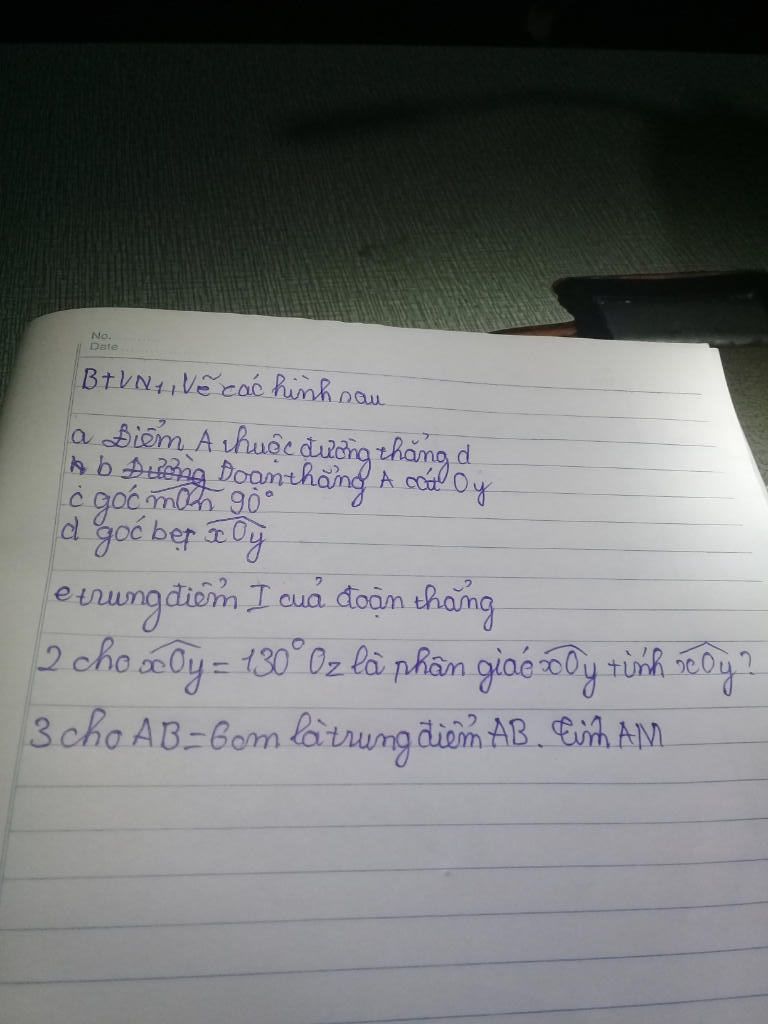 No.
Date
BTVN1, Vẽ các hình sau
a Điểm A thuộc đường thẳng d
b Đường Đoạn thẳng A cắt Oy
c góc mOn 90°
d góc bẹt xOy
e trung điểm I cuả đoạn thẳng
2 cho xOy = 130° Oz là phân giác xOy tính xOy?
3 cho AB = 6cm là trung điểm AB. Tính AM